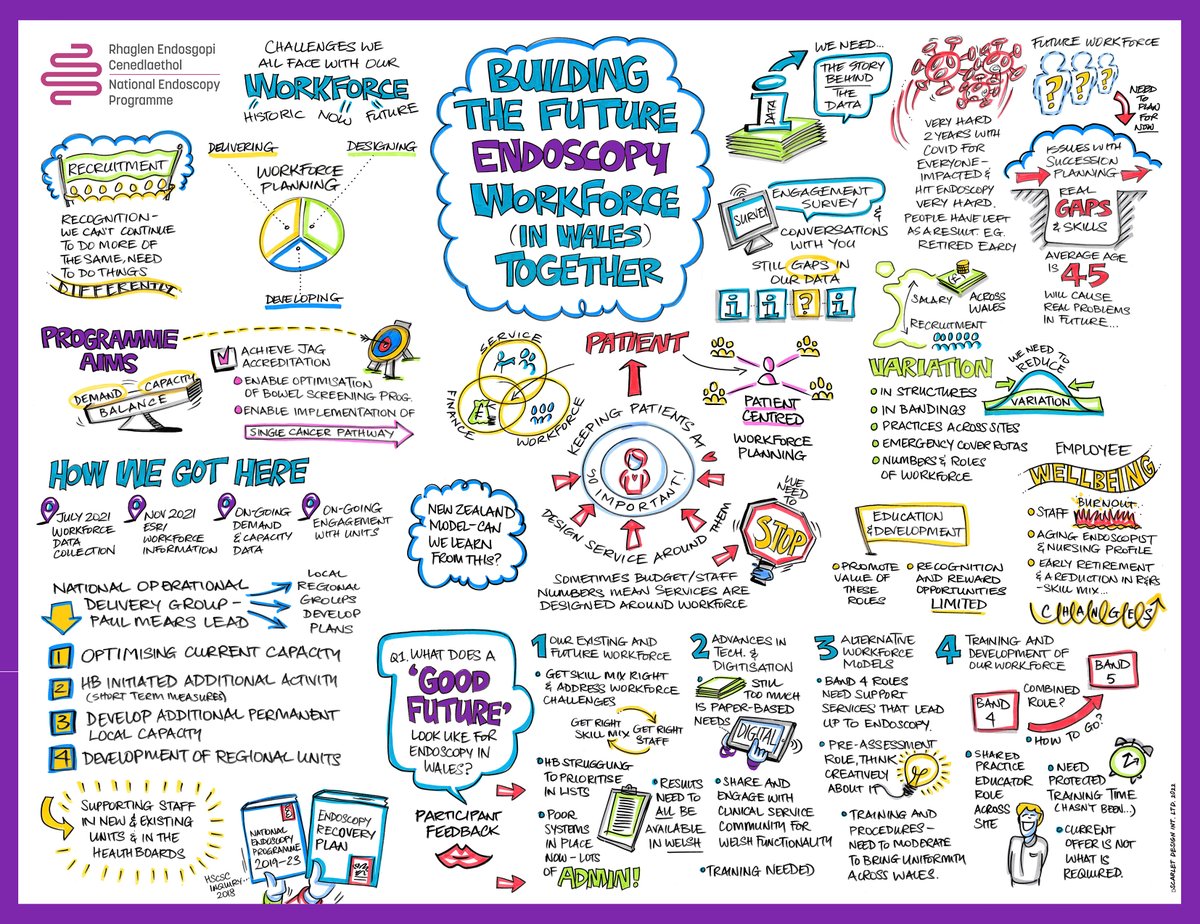 Rhaglen Endosgopi
Cenedlaethol
National Endoscopy
Programme
CHALLENGES WE
ALL FACE WITH OUR
WORKFORCE
HISTORIC NOW FUTURE
BUILDING
THE FUTURE
ENDOSCOPY
WORKFORCE
(IN WALES)
TOGETHER
RECRUITMENT
RECOGNITION-
WE CAN'T CONTINUE
TO DO MORE OF
THE SAME, NEED
TO DO THINGS
DIFFERENTLY
DELIVERING
DESIGNING
WORKFORCE
PLANNING
DEVELOPING
WE NEED...
THE STORY
BEHIND
THE
DATA
i
DATA
SURVEY
ENGAGEMENT
SURVEY &
CONVERSATIONS
WITH YOU
STILL GAPS IN
OUR DATA
i i ? i
VERY HARD
2 YEARS WITH
COVID FOR
EVERYONE-
IMPACTED &
HIT ENDOSCOPY
VERY HARD.
PEOPLE HAVE LEFT
AS A RESULT. E.G.
RETIRED EARLY
FUTURE WORKFORCE
? ? ?
NEED
TO
PLAN
FOR
NOW
ISSUES WITH
SUCCESSION
PLANNING
REAL
GAPS
& SKILLS
AVERAGE AGE
IS 45
WILL CAUSE
REAL PROBLEMS
IN FUTURE...
SALARY
ACROSS
WALES
RECRUITMENT
PROGRAMME
AIMS
DEMAND
CAPACITY
BALANCE
ACHIEVE JAG
ACCREDITATION
ENABLE OPTIMISATION
OF BOWEL SCREENING PROG.
ENABLE IMPLEMENTATION OF
SINGLE CANCER PATHWAY
SERVICE
FINANCE
£
WORKFORCE
PATIENT
KEEPING PATIENTS AT ♥
SO IMPORTANT!
DESIGN SERVICE AROUND THEM
PATIENT
CENTRED
WORKFORCE
PLANNING
WE
NEED
TO
STOP
SOMETIMES BUDGET/STAFF
NUMBERS MEAN SERVICES ARE
DESIGNED AROUND WORKFORCE
VARIATION
IN STRUCTURES
IN BANDINGS
PRACTICES ACROSS SITES
EMERGENCY COVER ROTAS
NUMBERS & ROLES
OF WORKFORCE
WE NEED TO
REDUCE
VARIATION
EMPLOYEE
WELLBEING
STAFF BURNOUT
AGING ENDOSCOPIST
& NURSING PROFILE
EARLY RETIREMENT
& A REDUCTION IN R&RS
-SKILL MIX...
CHANGES
EDUCATION
& DEVELOPMENT
PROMOTE
VALUE OF
THESE
ROLES
RECOGNITION
AND REWARD
OPPORTUNITIES
LIMITED
HOW WE GOT HERE
JULY 2021
WORKFORCE
DATA
COLLECTION
NOV 2021
ESR/
WORKFORCE
INFORMATION
ON-GOING
DEMAND
& CAPACITY
DATA
ON-GOING
ENGAGEMENT
WITH UNITS
NEW ZEALAND
MODEL-CAN
WE LEARN
FROM THIS?
NATIONAL OPERATIONAL
DELIVERY GROUP-
PAUL MEARS LEAD
LOCAL
REGIONAL
GROUPS
DEVELOP
PLANS
1 OPTIMISING CURRENT CAPACITY
2 HB INITIATED ADDITIONAL ACTIVITY
(SHORT TERM MEASURES)
3 DEVELOP ADDITIONAL PERMANENT
LOCAL CAPACITY
4 DEVELOPMENT OF REGIONAL UNITS
SUPPORTING STAFF
IN NEW & EXISTING
UNITS & IN THE
HEALTH BOARDS
NATIONAL
ENDOSCOPY
PROGRAMME
2019-23
ENDOSCOPY
RECOVERY
PLAN
HSCSC
INQUIRY..
2018
Q1. WHAT DOES A
'GOOD
FUTURE'
LOOK LIKE FOR
ENDOSCOPY IN
WALES?
PARTICIPANT
FEEDBACK
1 OUR EXISTING AND
FUTURE WORKFORCE
GET SKILL MIX RIGHT
& ADDRESS WORKFORCE
CHALLENGES
GET RIGHT
SKILL MIX
GET RIGHT
STAFF
HB STRUGGLING
TO PRIORITISE
IN LISTS
POOR
SYSTEMS
IN PLACE
NOW-LOTS
OF ADMIN!
2 ADVANCES IN
TECH. &
DIGITISATION
STILL
TOO MUCH
IS PAPER-BASED
NEEDS
DIGITAL
RESULTS
NEED TO
ALL BE
AVAILABLE
IN WELSH
SHARE AND
ENGAGE WITH
CLINICAL SERVICE
COMMUNITY FOR
WELSH FUNCTIONALITY
TRAINING NEEDED
3 ALTERNATIVE
WORKFORCE
MODELS
BAND 4 ROLES
NEED SUPPORT
SERVICES THAT LEAD
UP TO ENDOSCOPY.
PRE-ASSESSMENT
ROLE, THINK
CREATIVELY
ABOUT IT
TRAINING AND
PROCEDURES-
NEED TO MODERATE
TO BRING UNIFORMITY
ACROSS WALES.
4 TRAINING AND
DEVELOPMENT OF
OUR WORKFORCE
BAND
4
COMBINED
ROLE?
BAND
5
HOW TO GO?
SHARED
PRACTICE
EDUCATOR
ROLE
ACROSS
SITE
NEED
PROTECTED
TRAINING TIME
(HASN'T BEEN...)
CURRENT
OFFER IS NOT
WHAT IS
REQUIRED.
©SCARLET DESIGN INT. LTD. 2022